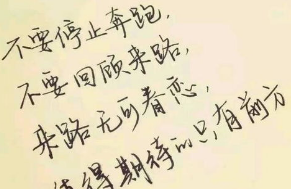 不要停止奔跑，
不要回顾来路，
来路无可眷恋，
值得期待的只有前方